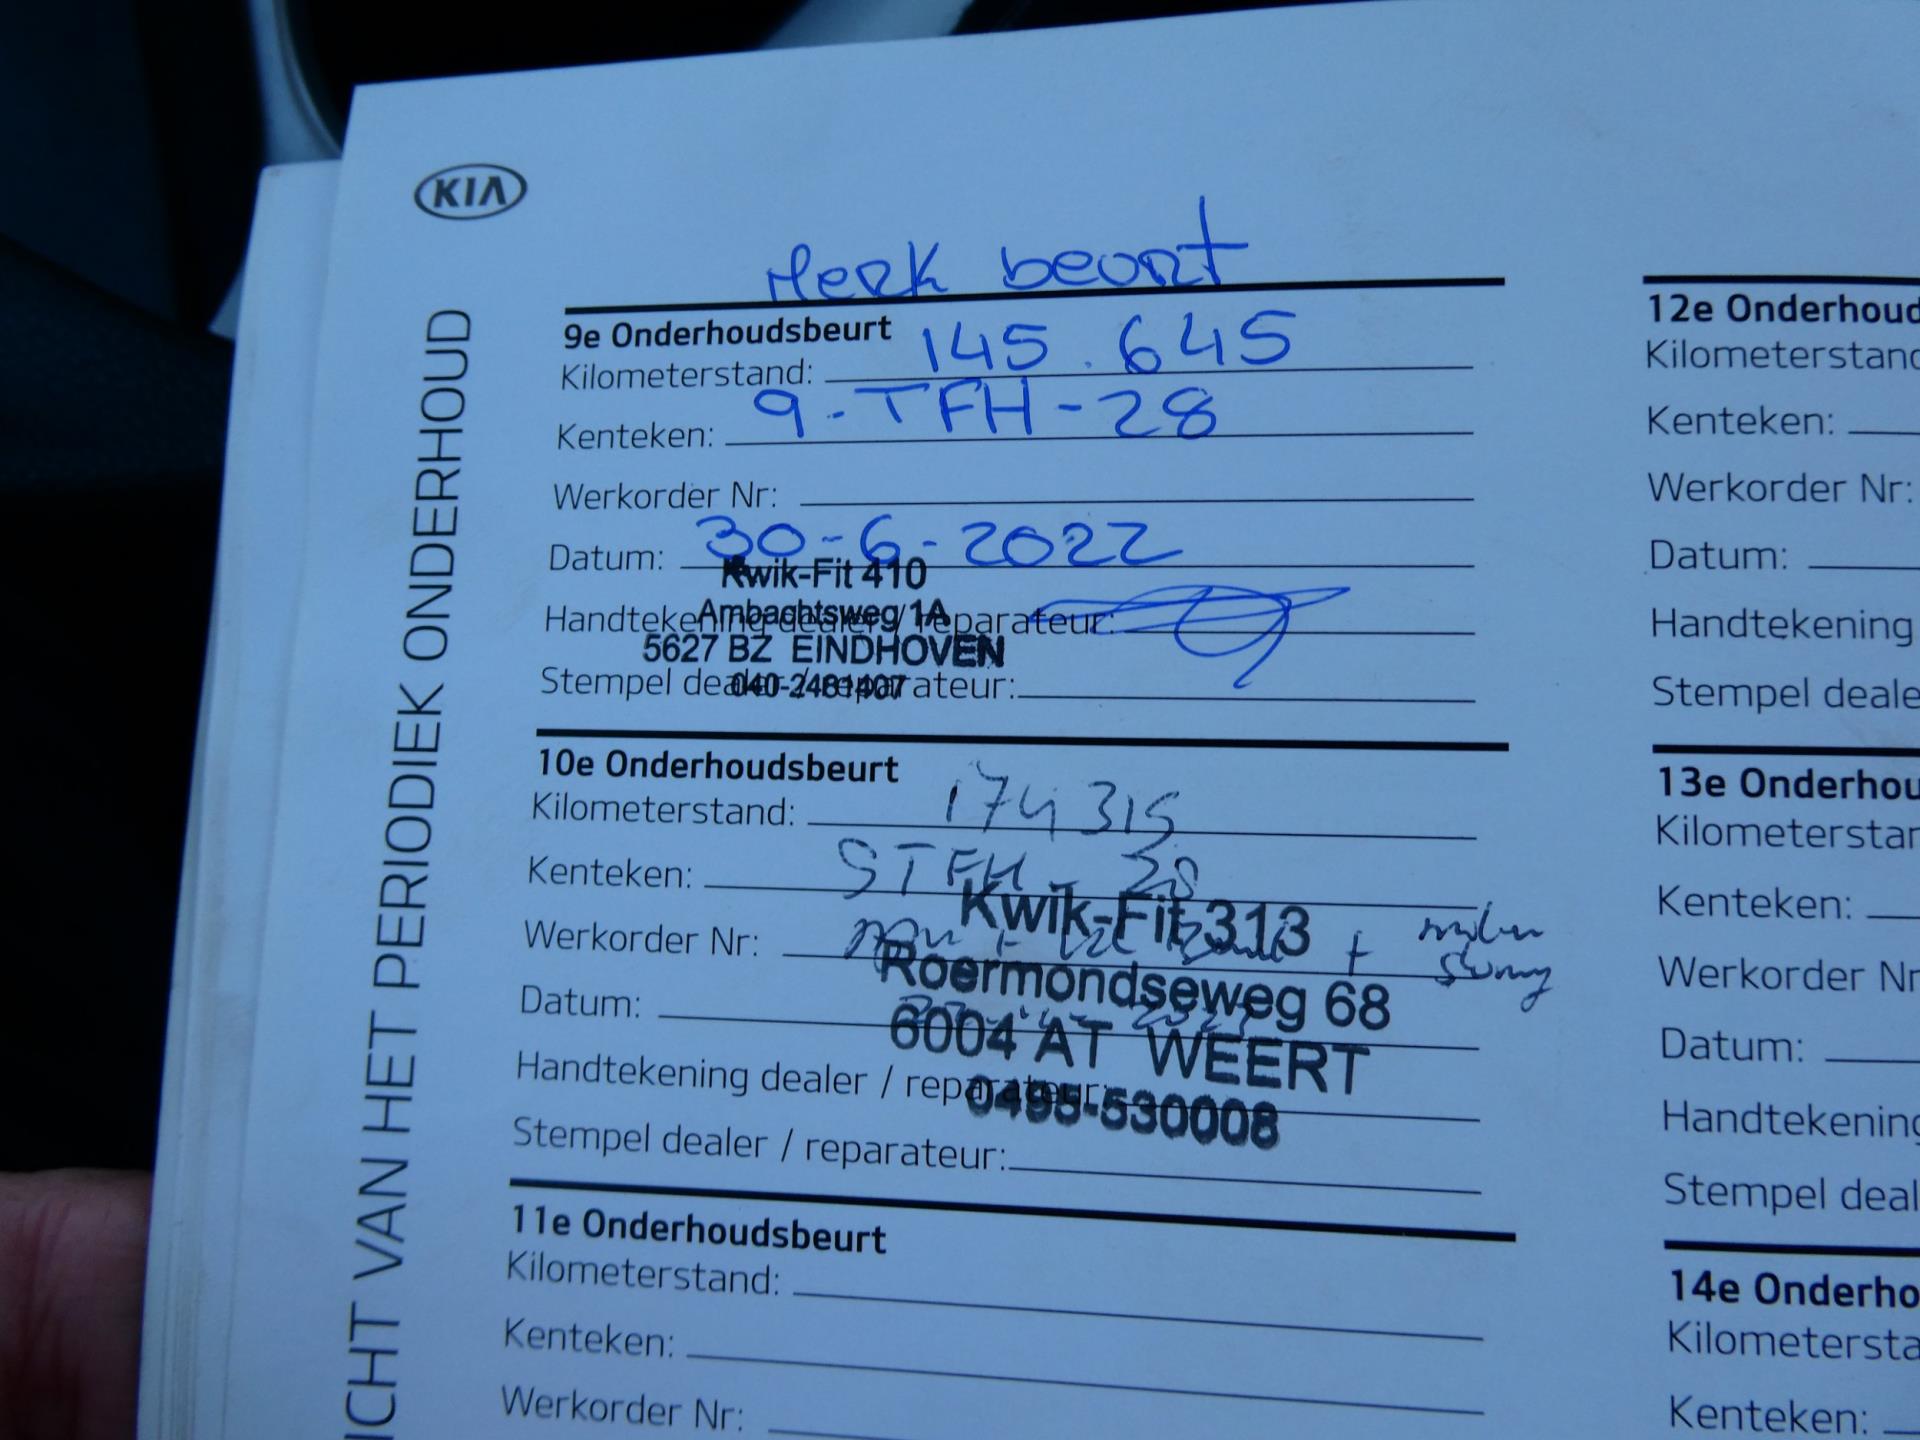 KIA
ICHT VAN HET PERIODIEK ONDERHOUD
Merk beurt
9e Onderhoudsbeurt
Kilometerstand: 145.645
Kenteken: 9-TFH-28
Werkorder Nr:
Datum: 30-6-2022
Kwik-Fit 410
Ambachtsweg 1A
Handtekening dealer / reparateur:
5627 BZ EINDHOVEN
Stempel dealer / reparateur:
040-2481407
10e Onderhoudsbeurt
Kilometerstand: 174315
Kenteken: 9TFH-28
Kwik-Fit 313
Werkorder Nr: + +
Roermondseweg 68
Datum:
6004 AT WEERT
Handtekening dealer / reparateur:
0495-530008
Stempel dealer / reparateur:
11e Onderhoudsbeurt
Kilometerstand:
Kenteken:
Werkorder Nr:
12e Onderhoud
Kilometerstand
Kenteken:
Werkorder Nr:
Datum:
Handtekening
Stempel deale
13e Onderhou
Kilometerstar
Kenteken:
Werkorder Nr
Datum:
Handtekening
Stempel deal
14e Onderho
Kilometersta
Kenteken: